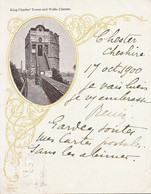 King Charles' Tower and Walls, Chester
Chester
Cheshire
17 oct. 1900
je vais bien
je vs embrasse
Gardez toutes
mes cartes postales
sans les abimer.